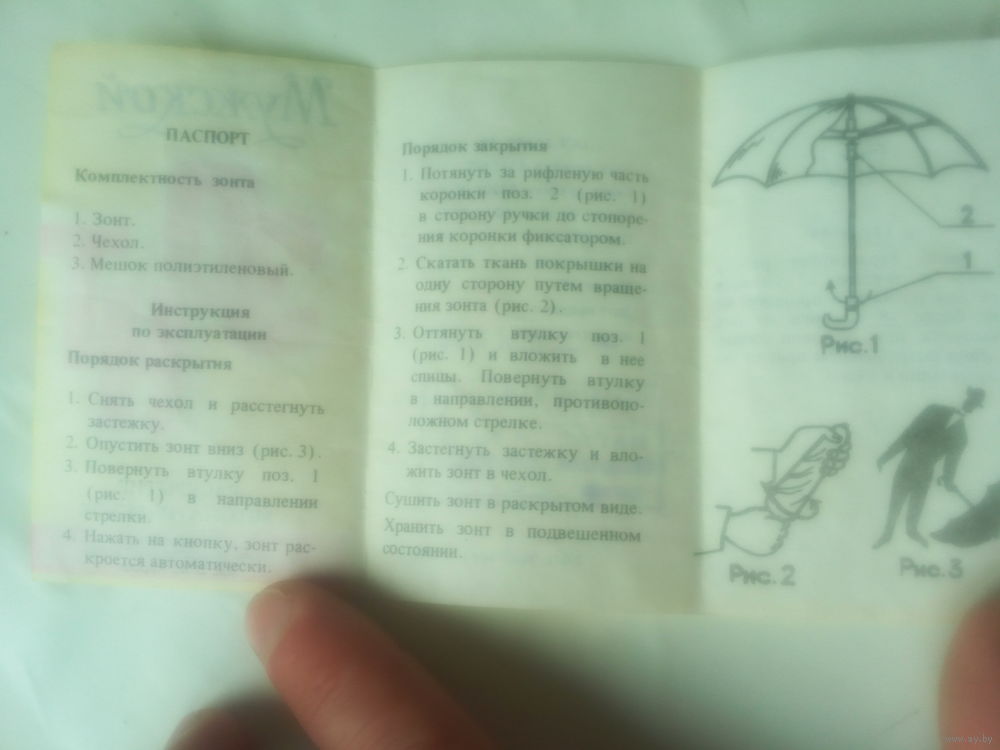 Мужской
ПАСПОРТ
Комплектность зонта
1. Зонт.
2. Чехол.
3. Мешок полиэтиленовый.
Инструкция
по эксплуатации
Порядок раскрытия
1. Снять чехол и расстегнуть
застежку.
2. Опустить зонт вниз (рис. 3).
3. Повернуть втулку поз. 1
(рис. 1) в направлении
стрелки.
4. Нажать на кнопку, зонт рас-
кроется автоматически.
Порядок закрытия
1. Потянуть за рифленую часть
коронки поз. 2 (рис. 1)
в сторону ручки до стопоре-
ния коронки фиксатором.
2. Скатать ткань покрышки на
одну сторону путем враще-
ния зонта (рис. 2).
3. Оттянуть втулку поз. 1
(рис. 1) и вложить в нее
спицы. Повернуть втулку
в направлении, противопо-
ложном стрелке.
4. Застегнуть застежку и вло-
жить зонт в чехол.
Сушить зонт в раскрытом виде.
Хранить зонт в подвешенном
состоянии.
2
1
Рис.1
Рис.2
Рис.3
www.ay.by